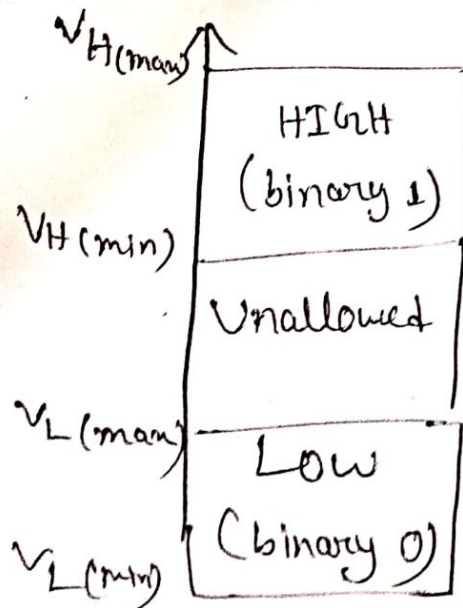 VH(max)
HIGH
(binary 1)
VH(min)
Unallowed
VL(max)
LOW
(binary 0)
VL(min)